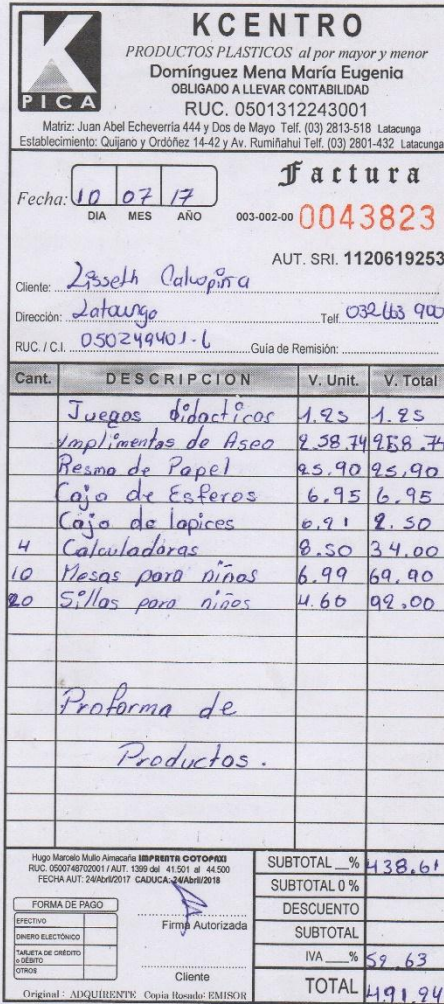 KCENTRO
PRODUCTOS PLASTICOS al por mayor y menor
Domínguez Mena María Eugenia
OBLIGADO A LLEVAR CONTABILIDAD
PICA
RUC. 0501312243001
Matriz: Juan Abel Echeverría 444 y Dos de Mayo Telf. (03) 2813-518 Latacunga
Establecimiento: Quijano y Ordóñez 14-42 y Av. Rumiñahui Telf. (03) 2801-432 Latacunga
Factura
Fecha: 10 07 17
DIA MES AÑO
003-002-00 0043823
AUT. SRI. 1120619253
Cliente: Lisseth Calvopiña
Dirección: Telf. 900
RUC. / C.I. Guía de Remisión:
Cant. DESCRIPCION V. Unit. V. Total
Juegos didacticos 1.25 1.25
Implimentos de Aseo 258.74 258.74
Resma de Papel 25.90 25.90
Caja de Esferos 6.95 6.95
Caja de lapices 2.50
4 Calculadoras 8.50 34.00
10 Mesas para niños 6.99 69,90
20 Sillas para niños 4.60 92.00
Proforma de
Productos.
Hugo Marcelo Mullo Aimacaña IMPRENTA COTOPAXI
RUC. 0500748702001 / AUT. 1399 del 41.501 al 44.500
FECHA AUT: 24/Abril/2017 CADUCA: 24/Abril/2018
FORMA DE PAGO
EFECTIVO
DINERO ELECTRÓNICO
TARJETA DE CRÉDITO o DÉBITO
OTROS
Firma Autorizada
Cliente
Original : ADQUIRENTE Copia Rosado: EMISOR
SUBTOTAL __% 438.61
SUBTOTAL 0 %
DESCUENTO
SUBTOTAL
IVA ___% 52,63
TOTAL 491.24